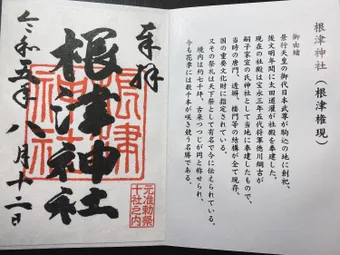 根津神社（根津権現）
御由緒
景行天皇の御代日本武尊が駒込の地に創祀、
後文明年間に太田道灌が社殿を奉建した。
現在の社殿は宝永三年五代将軍徳川綱吉が
嗣子家宣の氏神社として当地に奉建したもので、
当時の唐門、透塀、楼門等の結構が全て現存、
国の重要文化財に指定されている。
又その祭礼は天下祭として有名で今に伝えられている。
境内は約七千坪、古来つつじが岡と称せられ、
今も花季には数千本が咲き競う名勝である。
奉拝
根津神社
根津神社
元准勅祭
十社之内
令和五年八月十二日